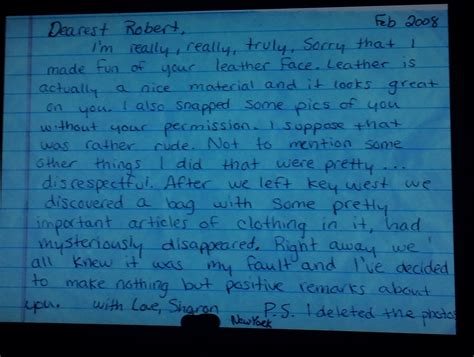 Dearest Robert, Feb 2008
I'm really, really, truly, Sorry that I
made fun of your leather Face. Leather is
actually a nice material and it looks great
on you. I also snapped some pics of you
without your permission. I suppose that
was rather rude. Not to mention some
other things I did that were pretty...
disrespectful. After we left key west we
discovered a bag with some pretty
important articles of clothing in it, had
mysteriously disappeared. Right away we
all knew it was my fault and I've decided
to make nothing but positive remarks about
you. with Love, Sharon P.S. I deleted the photos
New York